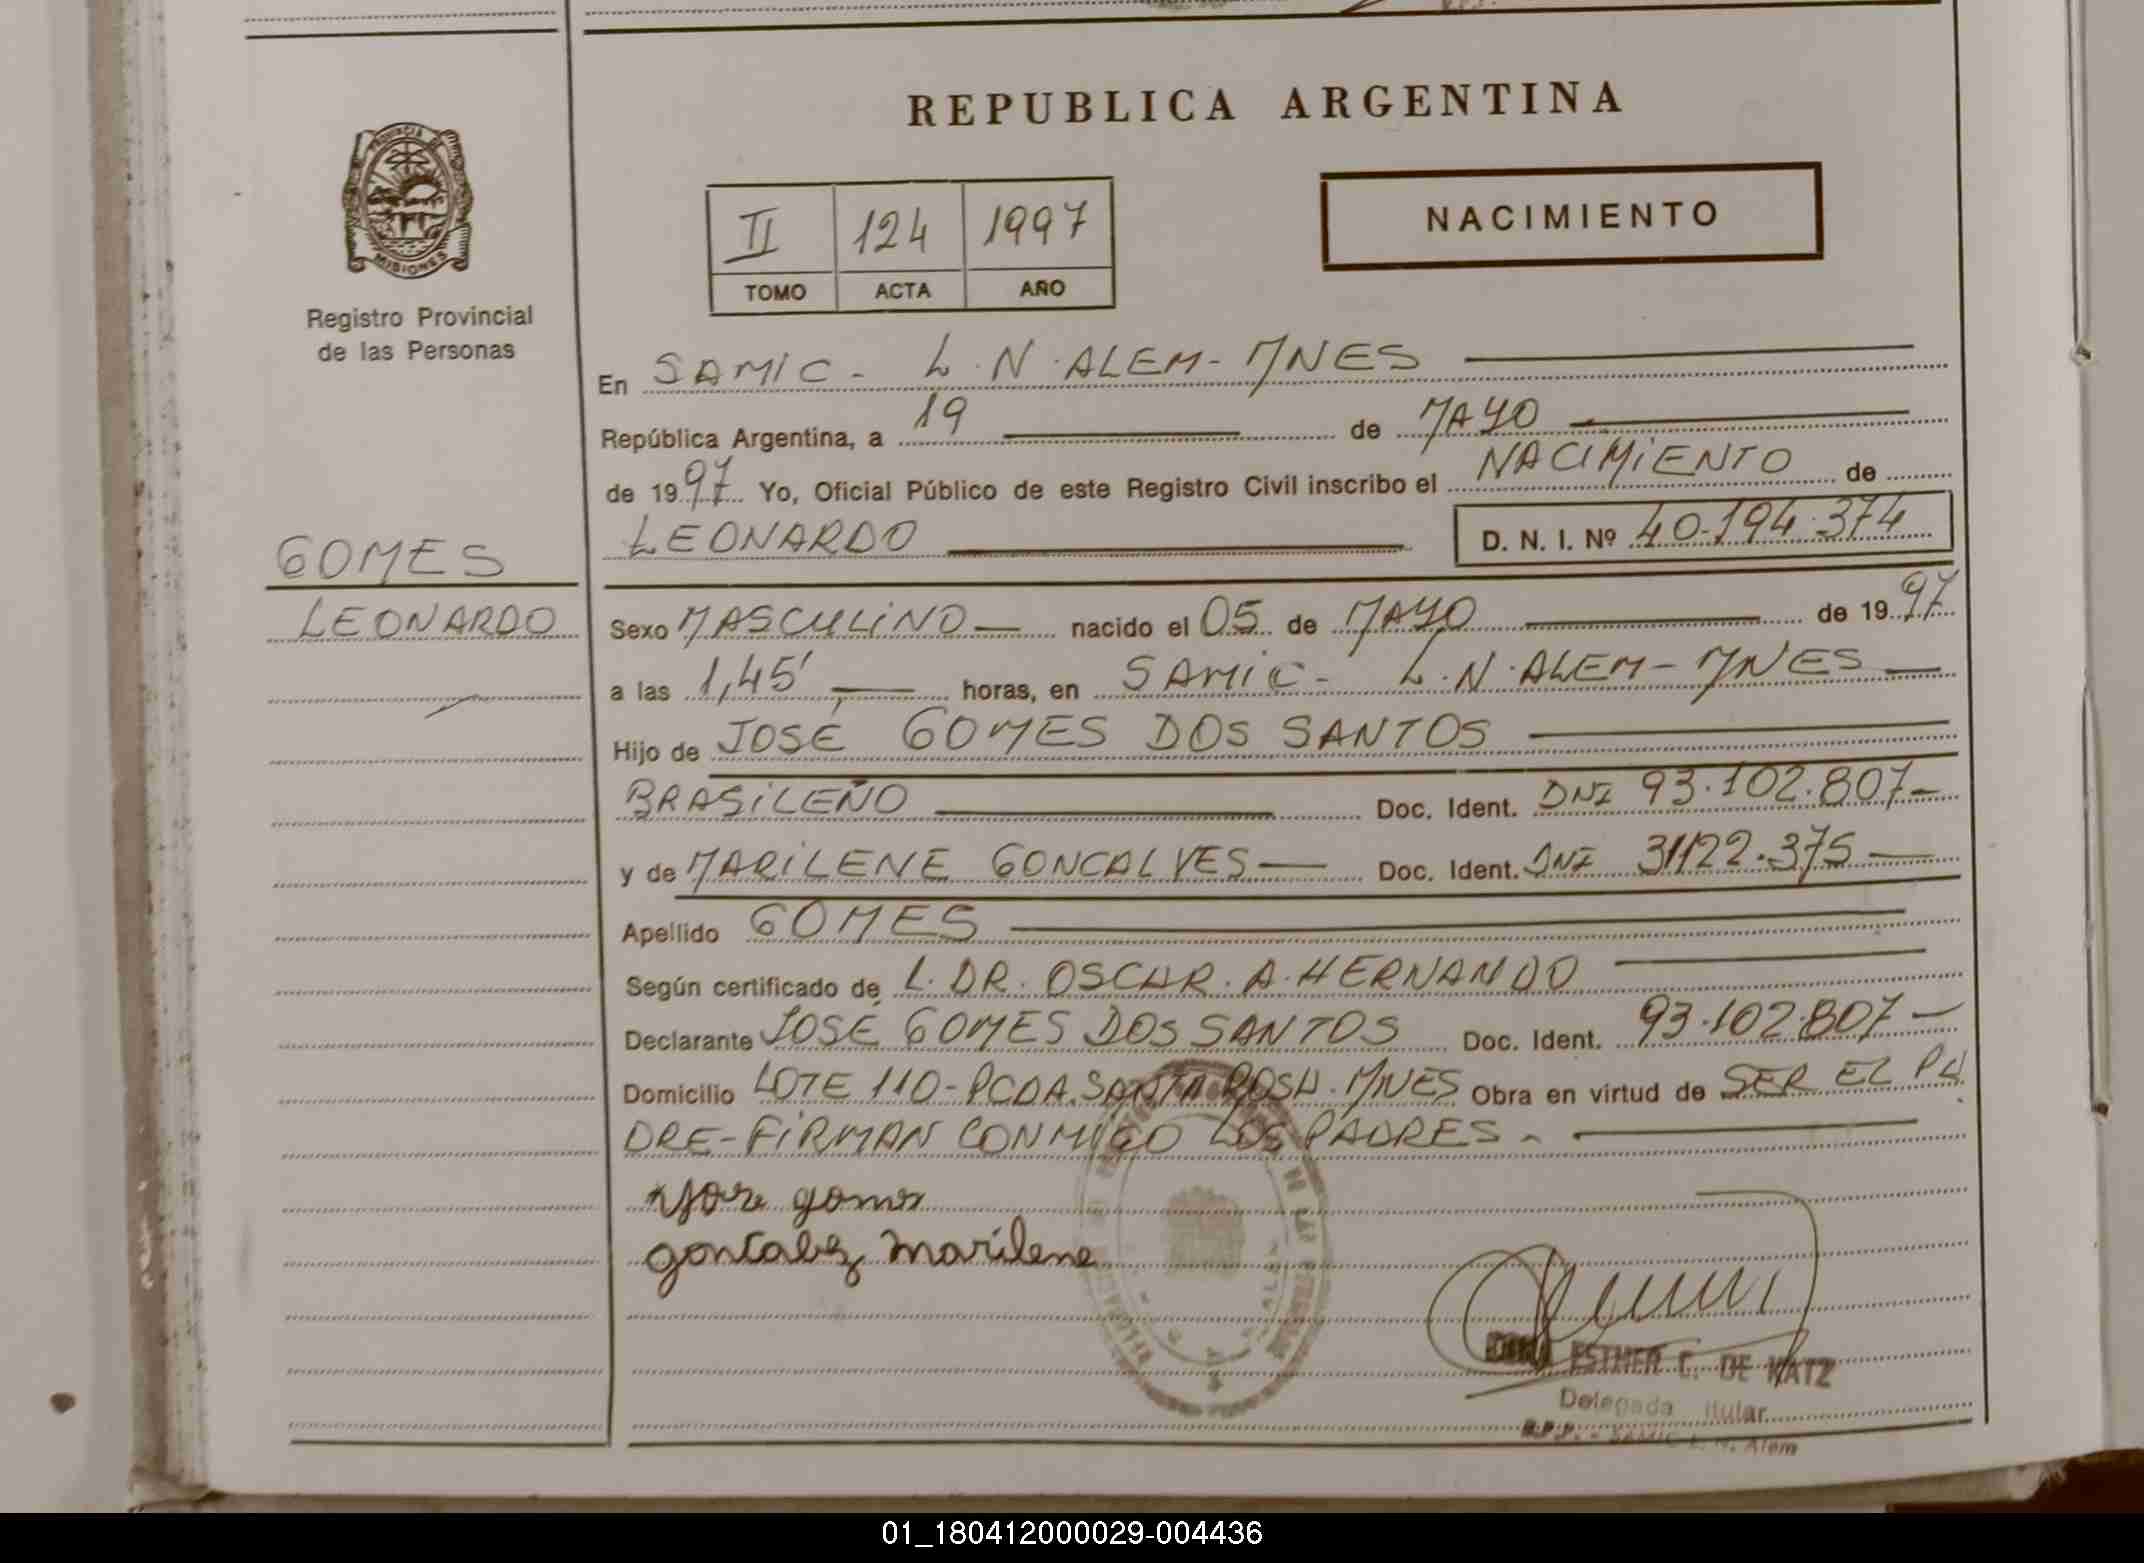 REPUBLICA ARGENTINA
PROVINCIA DE
MISIONES
Registro Provincial
de las Personas
II 124 1997
TOMO ACTA AÑO
NACIMIENTO
En SAMIC - L.N. ALEM - MNES
República Argentina, a 19 de MAYO
de 1997 Yo, Oficial Público de este Registro Civil inscribo el NACIMIENTO de
LEONARDO D. N. I. Nº 40.194.374
GOMES
LEONARDO
Sexo MASCULINO nacido el 05 de MAYO de 1997
a las 1,45' horas, en SAMIC - L.N. ALEM - MNES
Hijo de JOSÉ GOMES DOS SANTOS
BRASILEÑO Doc. Ident. DNI 93.102.807-
y de MARILENE GONCALVES Doc. Ident. DNI 31122.375
Apellido GOMES
Según certificado de L. DR. OSCAR. A. HERNANDO
Declarante JOSÉ GOMES DOS SANTOS Doc. Ident. 93.102.807
Domicilio LOTE 110 - PCDA. SANTA ROSA. MNES Obra en virtud de SER EL PA
DRE - FIRMAN CONMIGO LOS PADRES.
gomes
marilene
ESTHER C. DE KATZ
Delegada itular
R.P.P. - SAMIC L. N. Alem
01_180412000029-004436